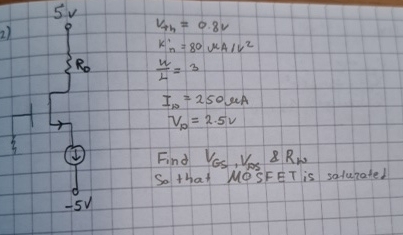 2)
5V
R_D
-5V
V_th = 0.8V
K'n = 80 μA/V²
W/L = 3
I_D = 250 μA
V_D = 2.5V
Find V_GS, V_DS & R_D
So that MOSFET is saturated